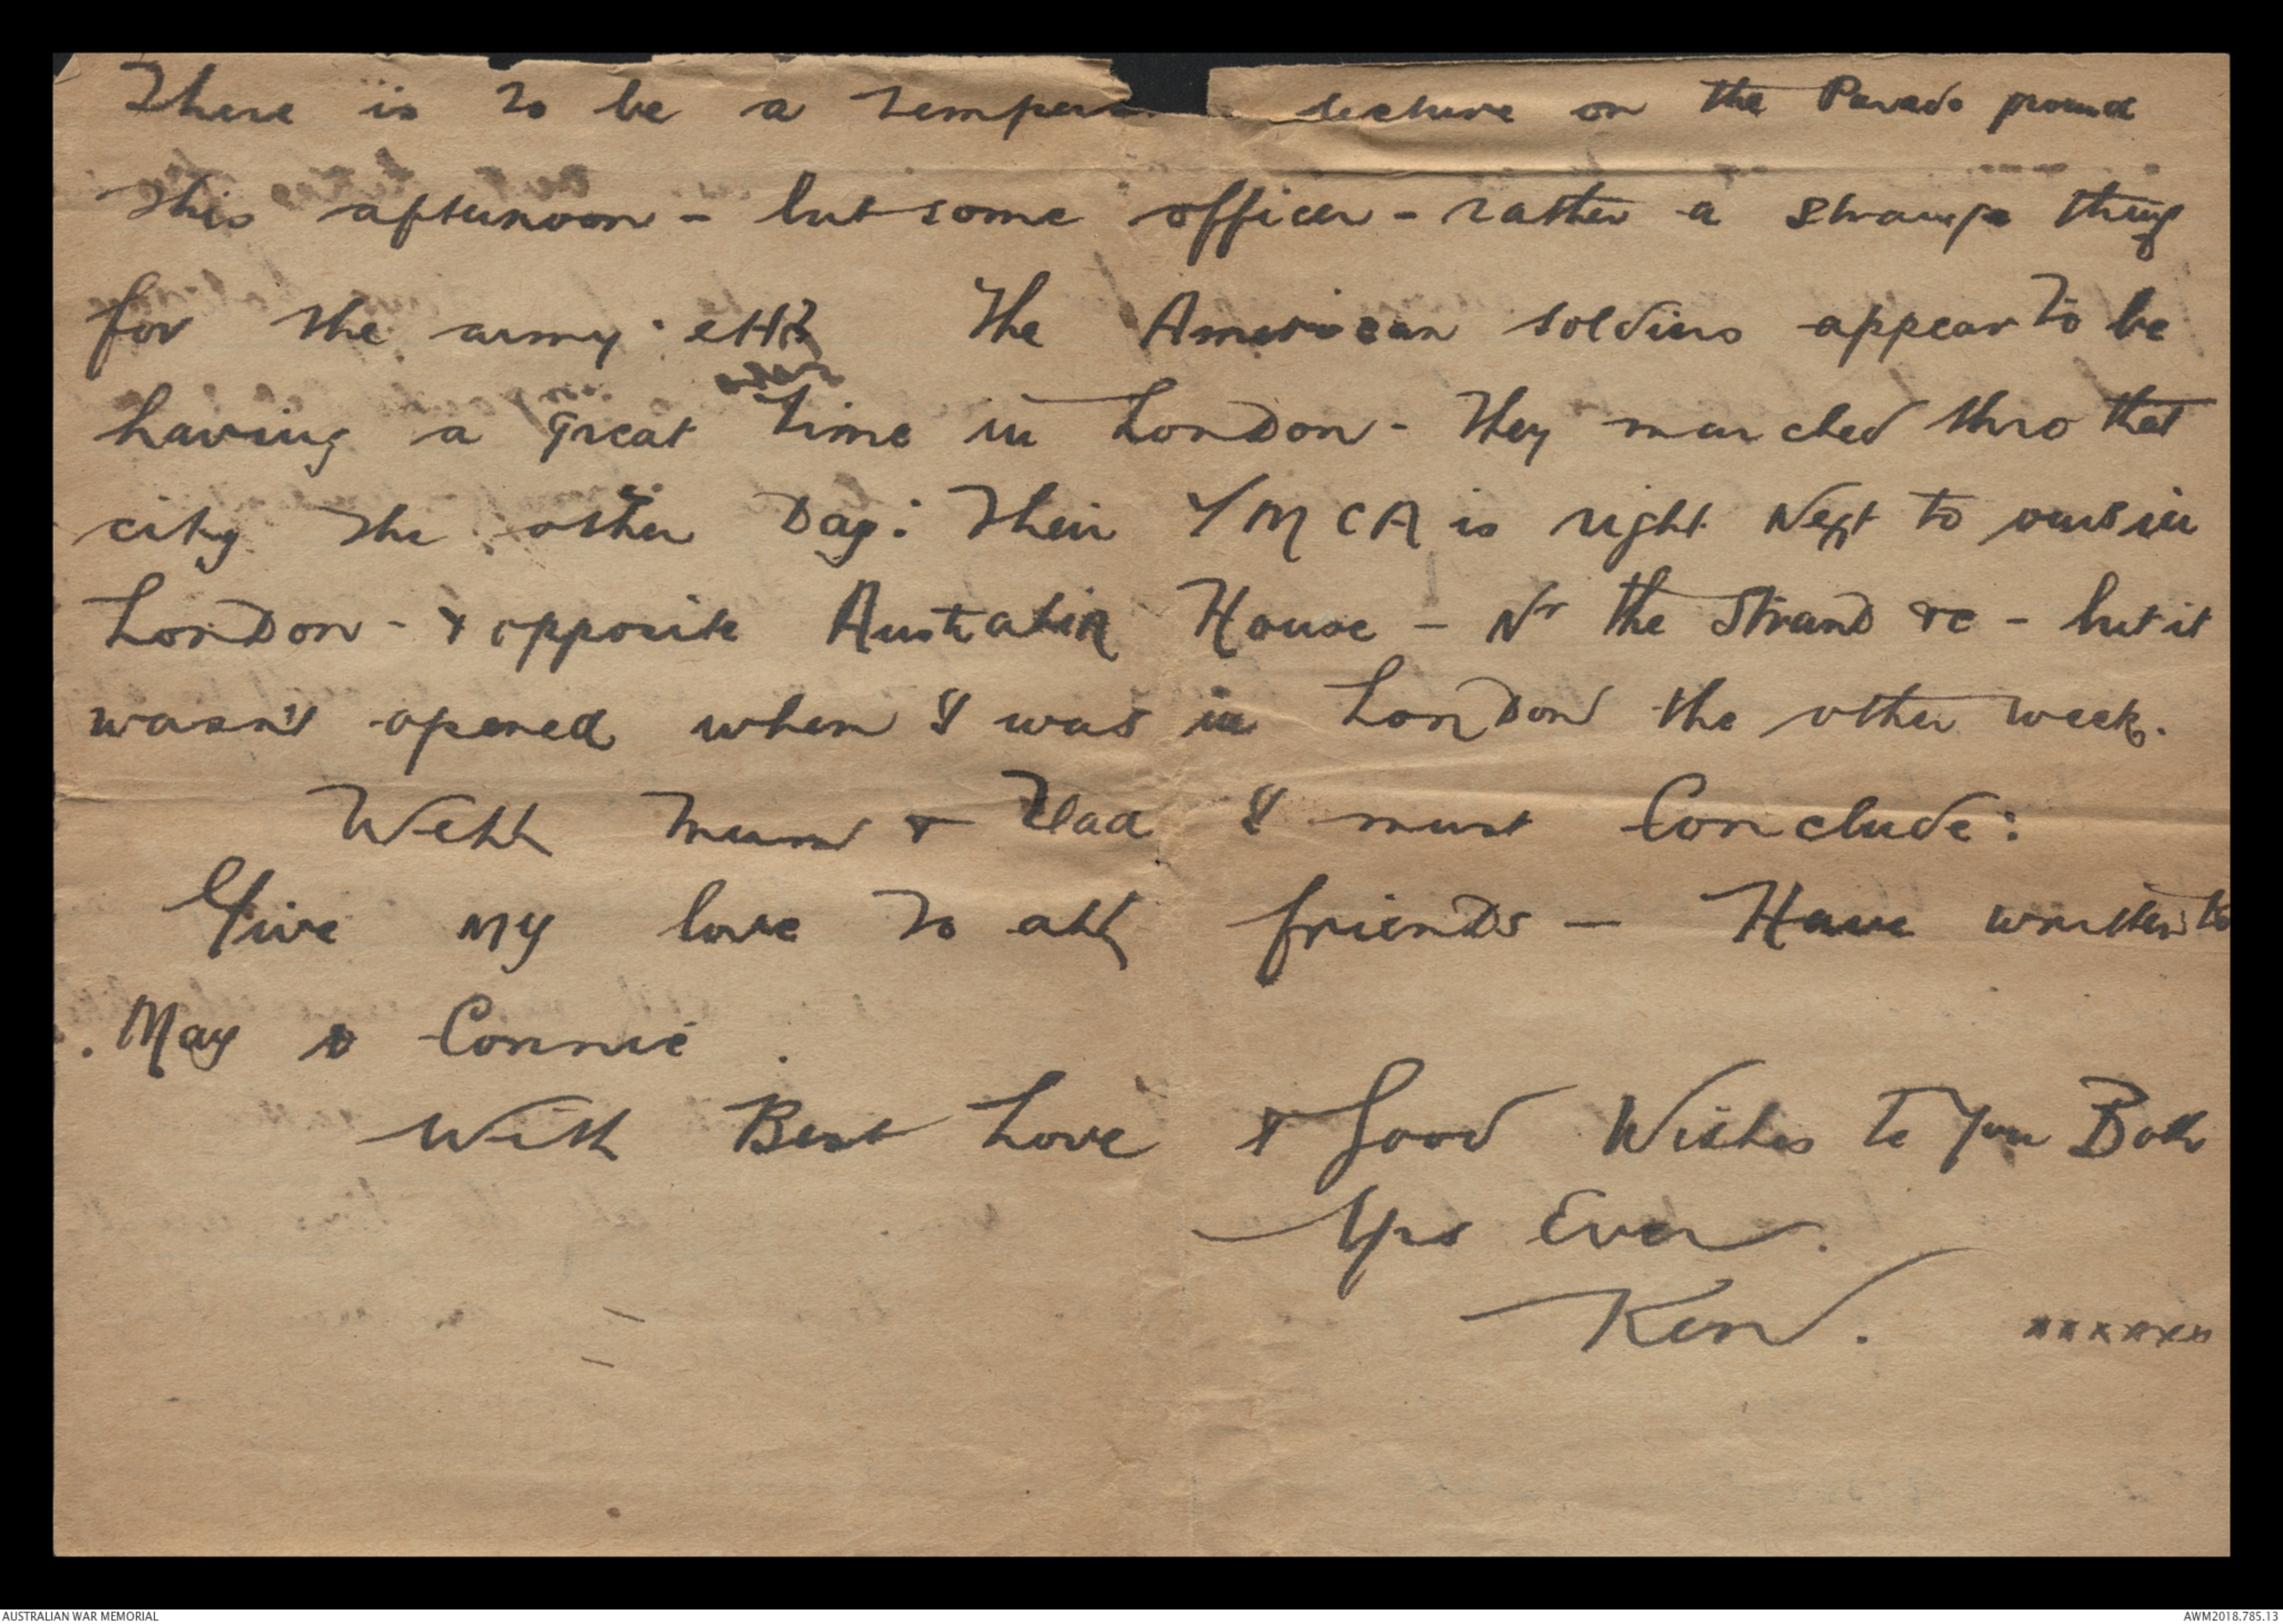 There is to be a temper lecture on the Parade ground
this afternoon - but some officer - rather a strange thing
for the army. eh?? The American soldiers appear to be
having a great time in London - They marched thro that
city the other Day: Their YMCA is right Next to ours in
London - & opposite Australia House - Nr the Strand &c - but it
wasn't opened when I was in London the other week.
Well Mum & Dad I must Conclude:
Give my love to all friends - Have written to
May & Connie.
With Best Love & Good Wishes to You Both
Yrs Ever.
Ken. xxxxxx
AUSTRALIAN WAR MEMORIAL
AWM2018.785.13